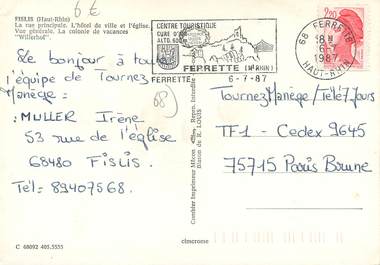 6 €
FISLIS (Haut-Rhin)
La rue principale. L'hôtel de ville et l'église.
Vue générale. La colonie de vacances
"Willerhof"
CENTRE TOURISTIQUE
CURE D'AIR
ALT. 500
FERRETTE (Ht RHIN)
FERRETTE
6-7-87
68 FERRETTE
18H
6-7
1987
HAUT-RHIN
2,20
Le bonjour à toute
l'équipe de Tournez
Manège :
MULLER Irène
53 rue de l'église
68480 FISLIS
Tél : 89407568.
68
Combier Imprimeur Mâcon
Repro. Interdite
Blason de R. LOUIS
Tournez Manège/Télé 7 Jours
TF1 - Cedex 9645
75715 Paris Brune
C 68092 405.5555
cimcrome